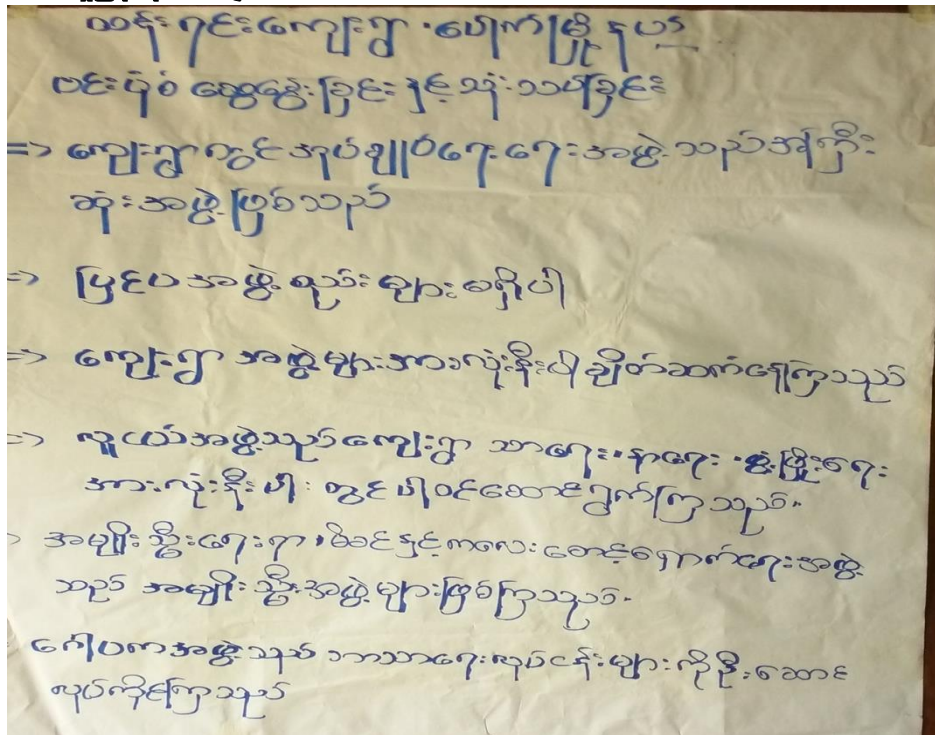 ထန်းရင်းကျေးရွာ ၊ ပေါက်မြို့နယ်
ဗင်းပုံစံ ဆွေးနွေးခြင်းနှင့်သုံးသပ်ခြင်း
=> ကျေးရွာတွင် အုပ်ချုပ်ရေး အဖွဲ့သည် အကြီး
ဆုံးအဖွဲ့ဖြစ်သည်
=> ပြင်ပအဖွဲ့စည်းများမရှိပါ
=> ကျေးရွာ အဖွဲ့များအားလုံးနီးပါးချိတ်ဆက်နေကြသည်
=> လူငယ်အဖွဲ့သည်ကျေးရွာ သာရေး၊နာရေး၊ဖွံ့ဖြိုးရေး
အားလုံးနီးပါး တွင်ပါဝင်ဆောင်ရွက်ကြသည်။
အမျိုးသ္မီးရေးရာ၊မိခင်နှင့်ကလေးစောင့်ရှောက်ရေးအဖွဲ့
သည် အမျိုးသ္မီးအဖွဲ့များဖြစ်ကြသည်။
ဂေါပကအဖွဲ့သည် ဘာသာရေးလုပ်ငန်းများကိုဦးဆောင်
လုပ်ကိုင်ကြသည်